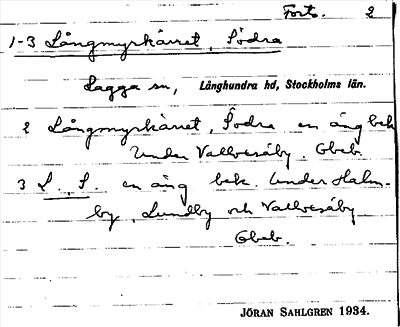 Forts. 2
1-3 Långmyrkärret, Södra
Lagga sn, Långhundra hd, Stockholms län.
2 Långmyrkärret, Södra en äng bek
under Vallvesäby. Gbeb.
3 L., S. en äng bek. under Halm-
by, Lundby och Vallvesäby
Gbeb.
JÖRAN SAHLGREN 1934.